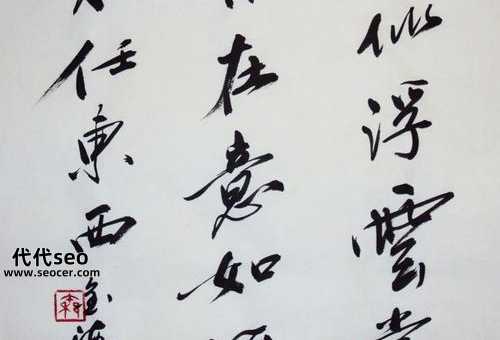 似浮雲
在意如
任東西
代代seo
www.seocer.com